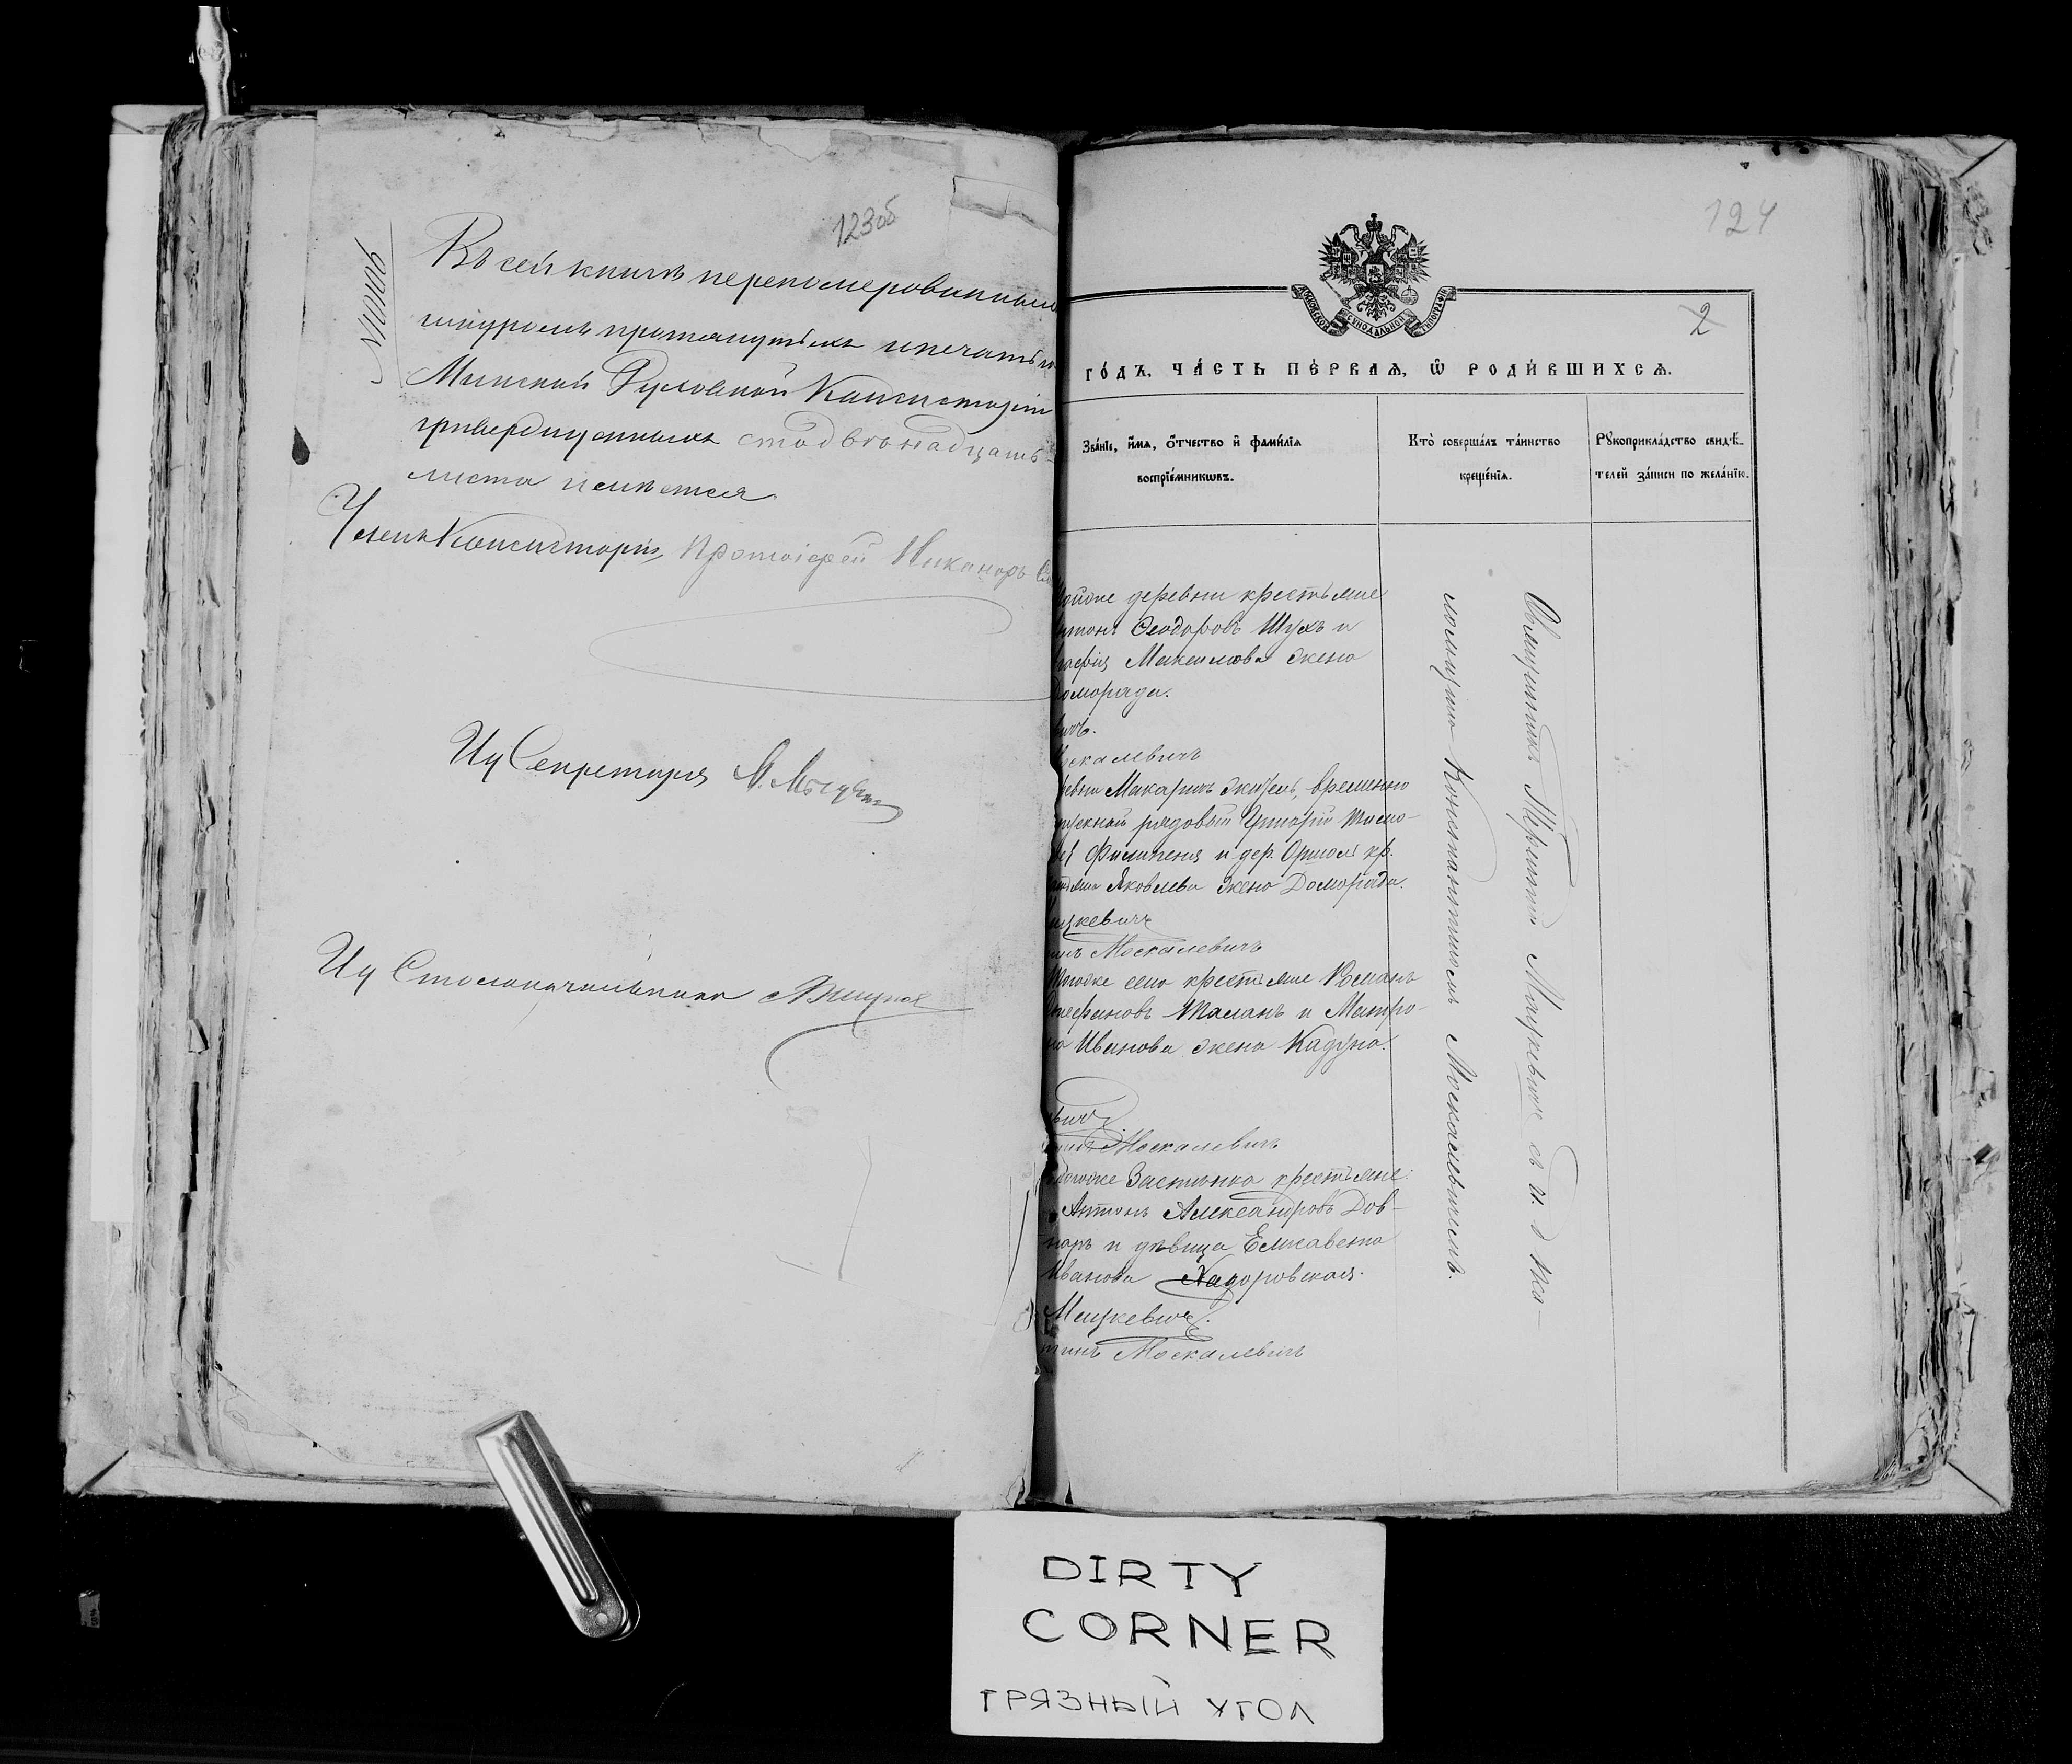 123об
Въ сей книгѣ перенумерованныхъ
шнуромъ протянутыхъ и печатью
Минской Духовной Консисторіи
утвержденныхъ сто двѣнадцать
листа имѣется
Членъ Консисторіи, Протоіерей Никаноръ
Ид Секретаря М.
Ид Столоначальника
124
МОСКОВСКОЙ СѴНОДАЛЬНОЙ ТИПОГРАФІИ
2
ГО́ДЪ. ЧА́СТЬ ПЕ́РВАѦ, Ѽ РОДИ́ВШИХСѦ.
Зва́нїе, и́мѧ, о́тчество и҆ фами́лїѧ
воспрїе́мникѡвъ.
Кто̀ соверша́лъ та́инство
креще́нїѧ.
Рꙋкоприкла́дство свидѣ́-
телей за́писи по жела́нїю.
деревни крестьяне
Ѳеодоровъ Шухъ и
Максимова жена
Доморада.
вичъ.
Москалевичъ
Макаричъ житель, временно
рядовый Григорій Тимо-
Филипеня и дер. кр.
Яковлева жена Доморада.
Мацкевичъ
Москалевичъ
тогоже села крестьяне Романъ
Стефановъ Таланъ и Матро-
на Иванова жена Кадуна.
вичъ
Москалевичъ
тогоже Застѣнка крестьяне:
Антонъ Александровъ Дов-
наръ и дѣвица Елисавета
Иванова
Мацкевичъ.
тинъ Москалевичъ
Священникъ Мацкевичъ съ и. д. пса-
ломщика Константиномъ Москалевичемъ.
DIRTY
CORNER
ГРЯЗНЫЙ УГОЛ